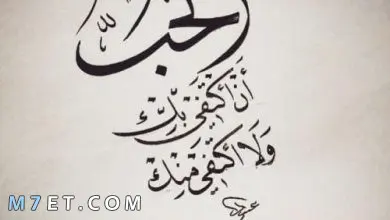 الحُبّ
أنْ أكتَفيَ بِكَ
وَلَا أكتَفيَ مِنكَ
M7ET.COM